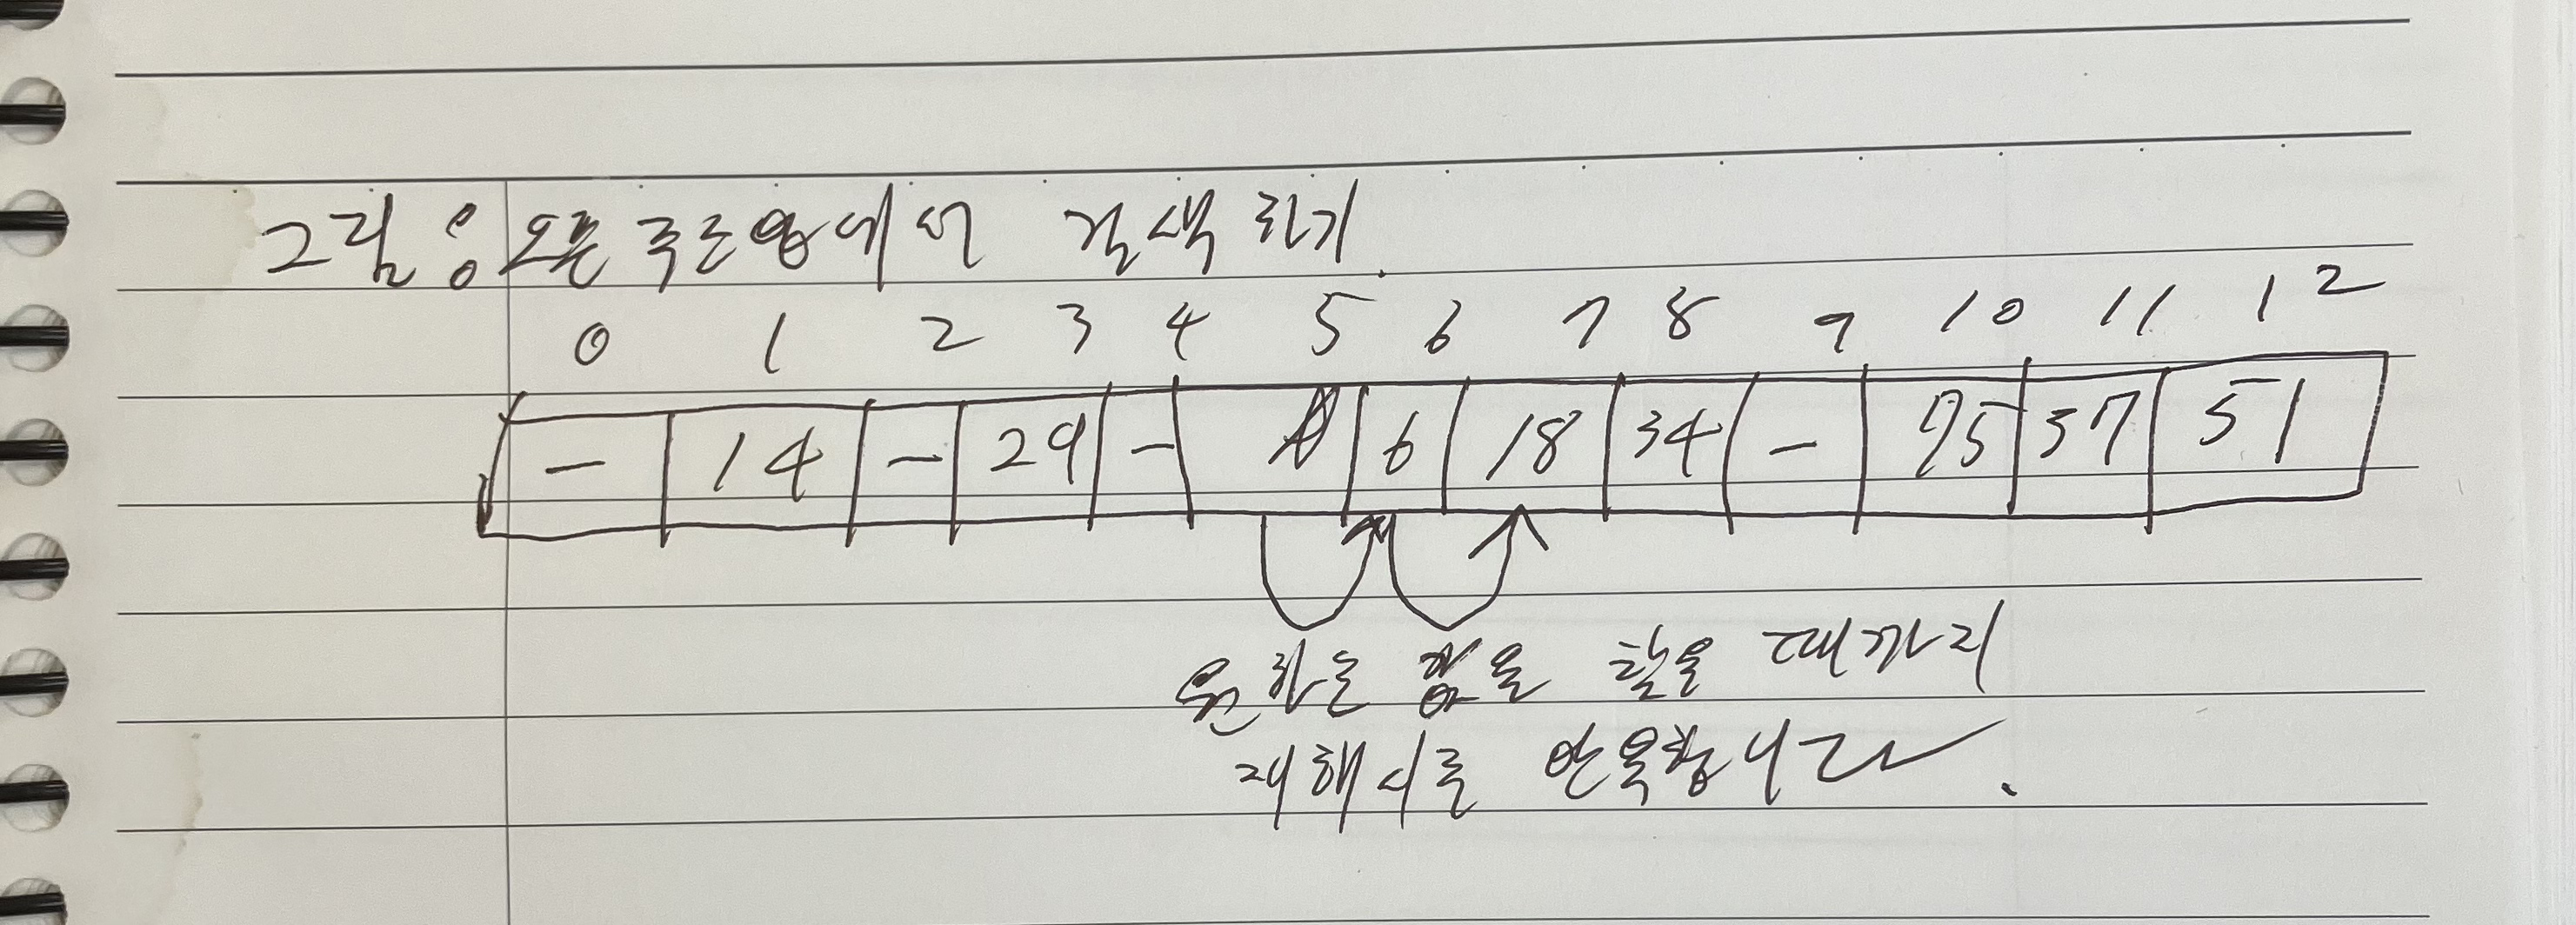 그림 : 오픈 주소법에서 검색 하기.
0 1 2 3 4 5 6 7 8 9 10 11 12
- 14 - 29 - 6 18 34 - 75 37 51
원하는 값을 찾을 때까지
재해시를 반복합니다.